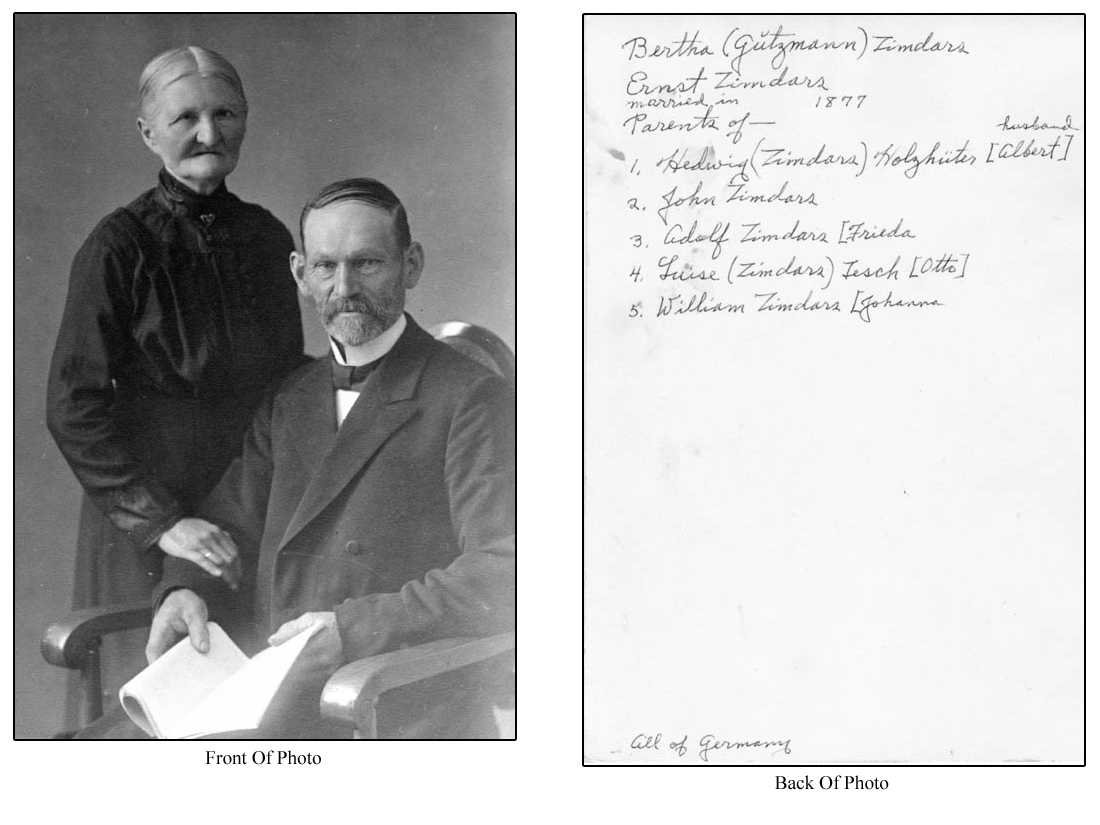 Bertha (Gützmann) Zimdars
Ernst Zimdars
married in 1877
Parents of—
husband
1. Hedwig (Zimdars) Holzhüter [Albert]
2. John Zimdars
3. Adolf Zimdars [Frieda
4. Luise (Zimdars) Tesch [Otto]
5. William Zimdars [Johanna
All of Germany
Front Of Photo
Back Of Photo